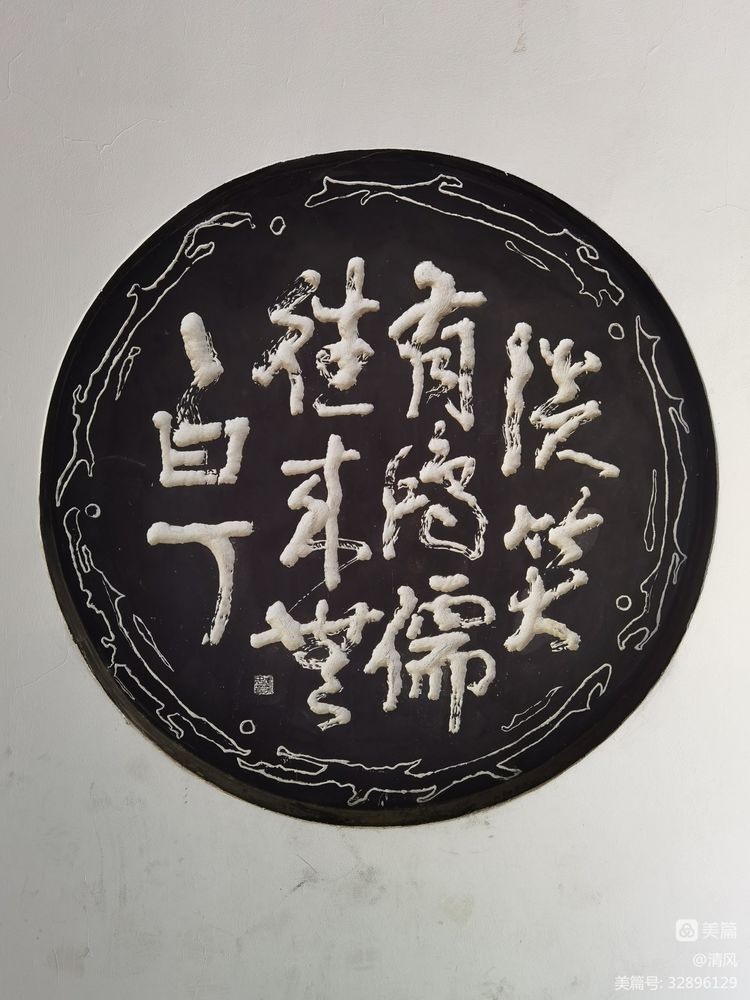 谈笑
有鸿儒
往来無
白丁
美篇
@清风
美篇号: 32896129